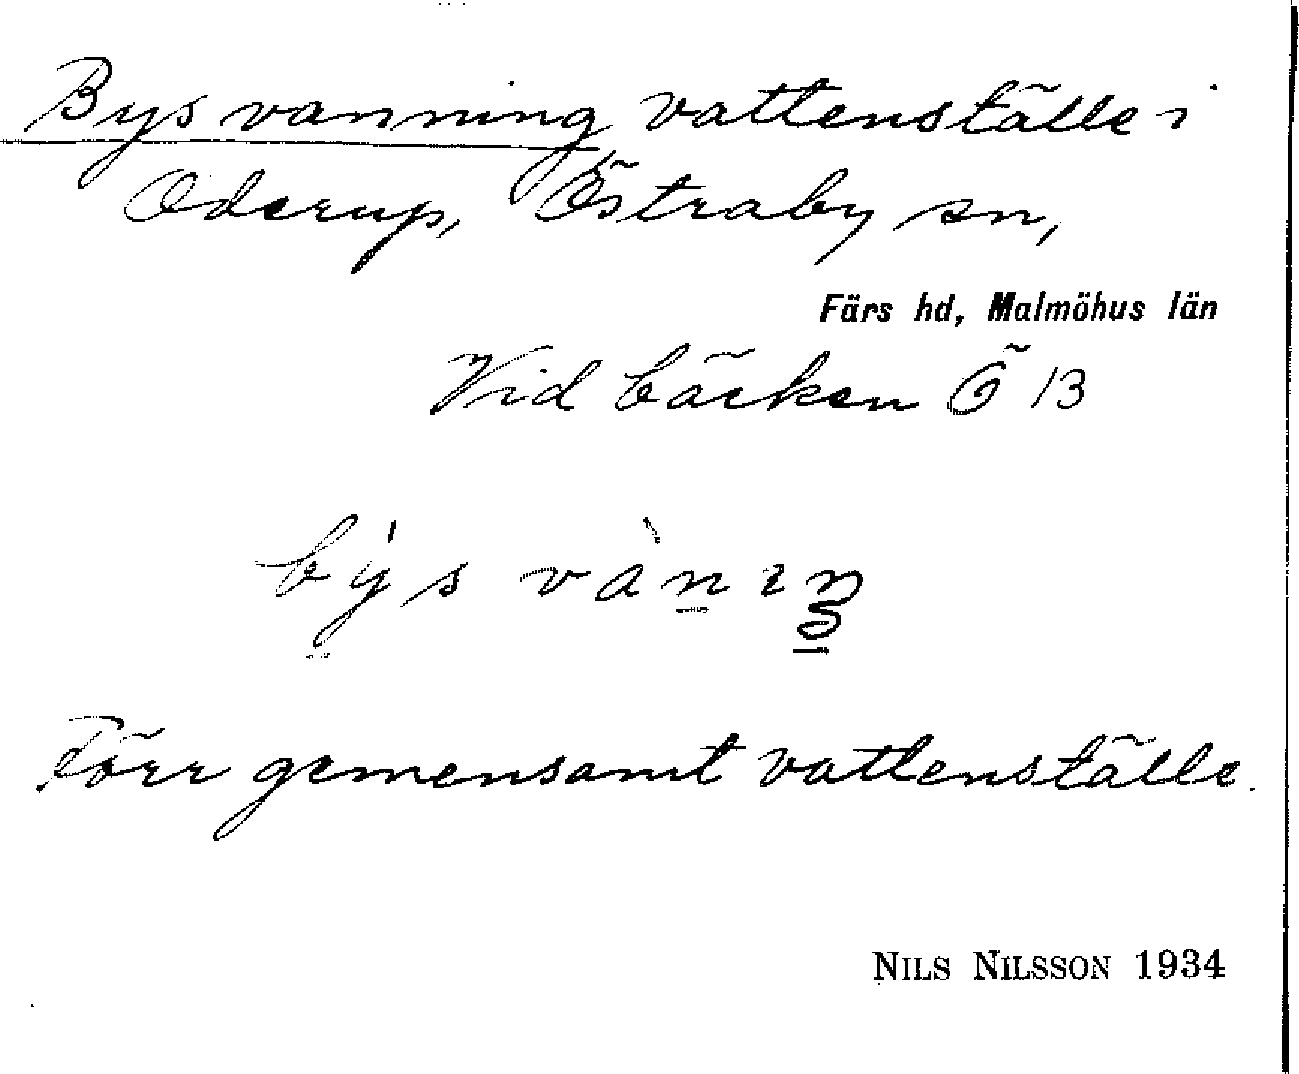 Bys vanning vattenställe i
Oderup, Östraby sn,
Färs hd, Malmöhus län
Vid bäcken Ö 13
býs vànıŋ
Förr gemensamt vattenställe.
NILS NILSSON 1934